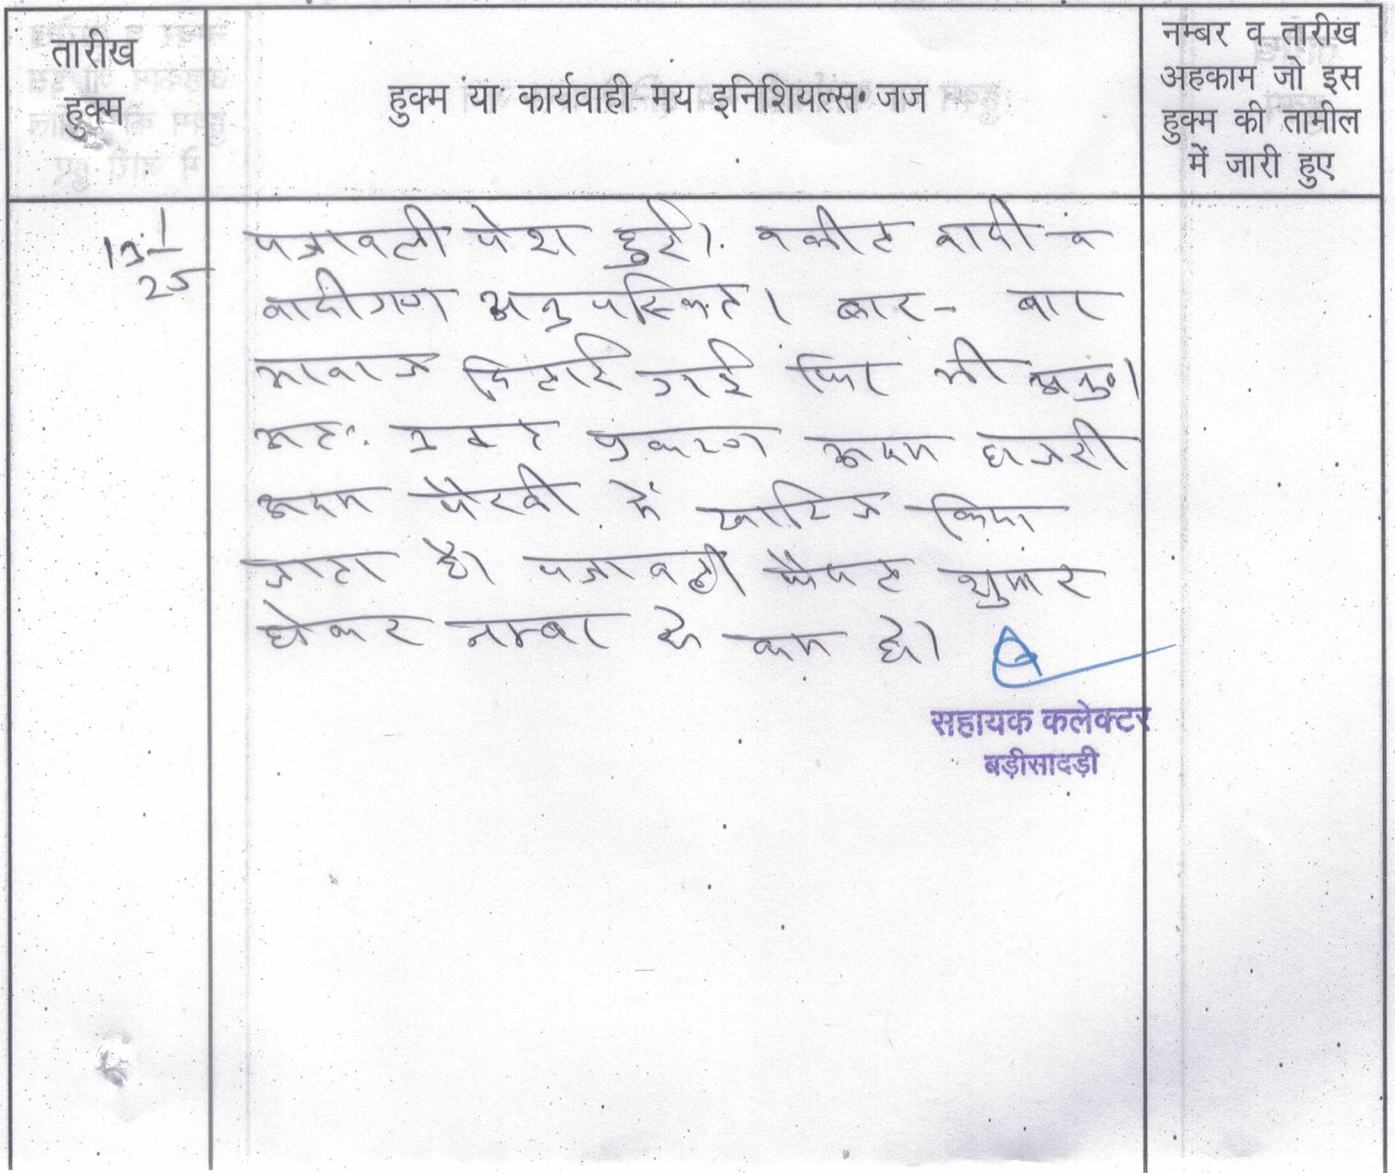 तारीख
हुक्म
हुक्म या कार्यवाही मय इनिशियल्स जज
नम्बर व तारीख
अहकाम जो इस
हुक्म की तामील
में जारी हुए
पत्रावली पेश हुई। वकील वादी व
वादीगण अनुपस्थित। बार - बार
आवाज दिलाई गई फिर भी अनु०।
अतः प्रकरण अदम हाजरी
अदम पैरवी में खारिज किया
जाता है। पत्रावली फैसल शुमार
होकर नम्बर से कम हो।
सहायक कलेक्टर
बड़ीसादड़ी